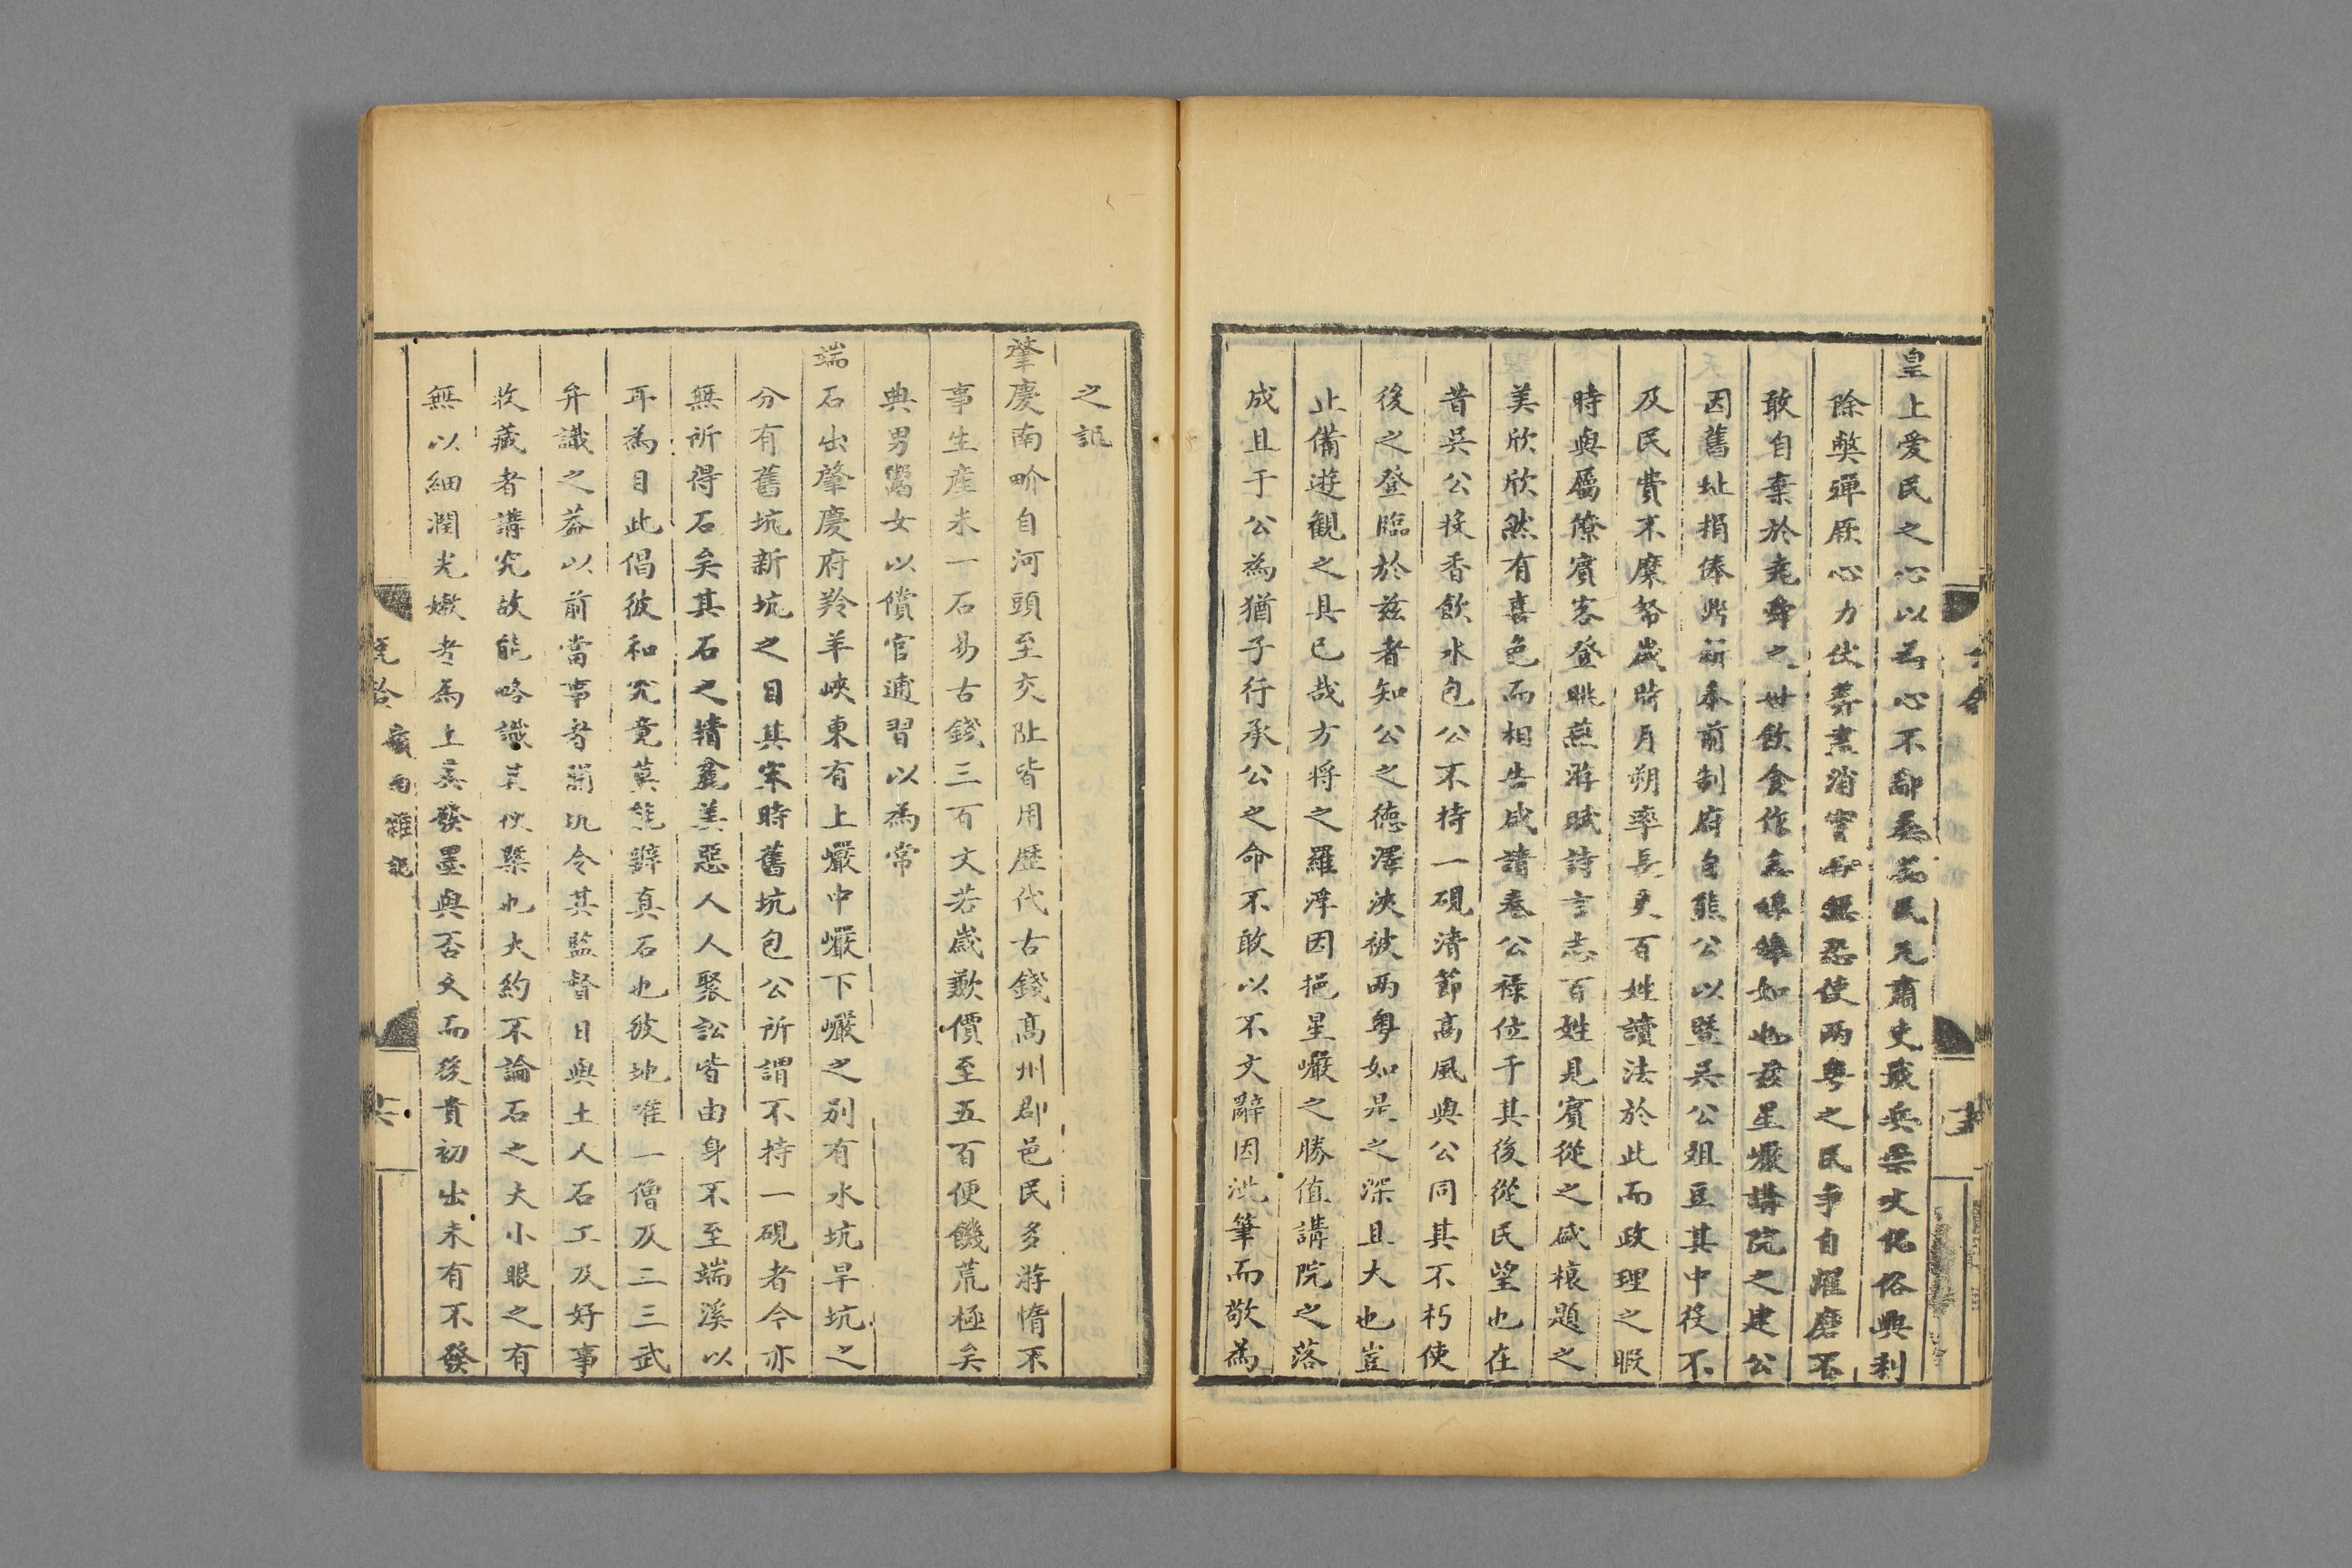 皇上愛民之心以為心不鄙夷吾民尤肅吏戢兵崇文化俗興利
除弊殫厥心力伏莽潢消寧無恐使兩粵之民爭自濯磨不
敢自棄於堯舜之世飲食作息皞皞如也茲星巖講院之建公
因舊址捐俸鼎新奉前制府自熊公以暨吳公俎豆其中役不
及民費不糜帑歲時月朔率長吏百姓讀法於此而政理之暇
時與屬僚賓客登眺燕游賦詩言志百姓見賓從之盛榱題之
美欣欣然有喜色而相告咸請奉公祿位千其後從民望也在
昔吳公投香飲水包公不持一硯清節高風與公同其不朽使
後之登臨於茲者知公之德澤浹被兩粵如是之深且大也豈
止備遊觀之具已哉方將之羅浮因挹星巖之勝值講院之落
成且于公為猶子行承公之命不敢以不文辭因洗筆而敬為
之記
肇慶南畍自河頭至交阯皆用歷代古錢高州郡邑民多游惰不
事生産米一石易古錢三百文若歲歉價至五百便饑荒極矣
典男鬻女以償官逋習以為常
端石出肇慶府羚羊峽東有上巖中巖下巖之別有水坑旱坑之
分有舊坑新坑之目其宋時舊坑包公所謂不持一硯者今亦
無所得石矣其石之精麄美惡人人聚訟皆由身不至端溪以
耳為目此倡彼和究竟莫能辨真石也彼地唯一僧及二三武
弁識之葢以前當事者開坑令其監督日與土人石工及好事
收藏者講究故能略識其伙槩也大約不論石之大小眼之有
無以細潤光嫩者為上其發墨與否又而後貴初出未有不發
嶺南雜記